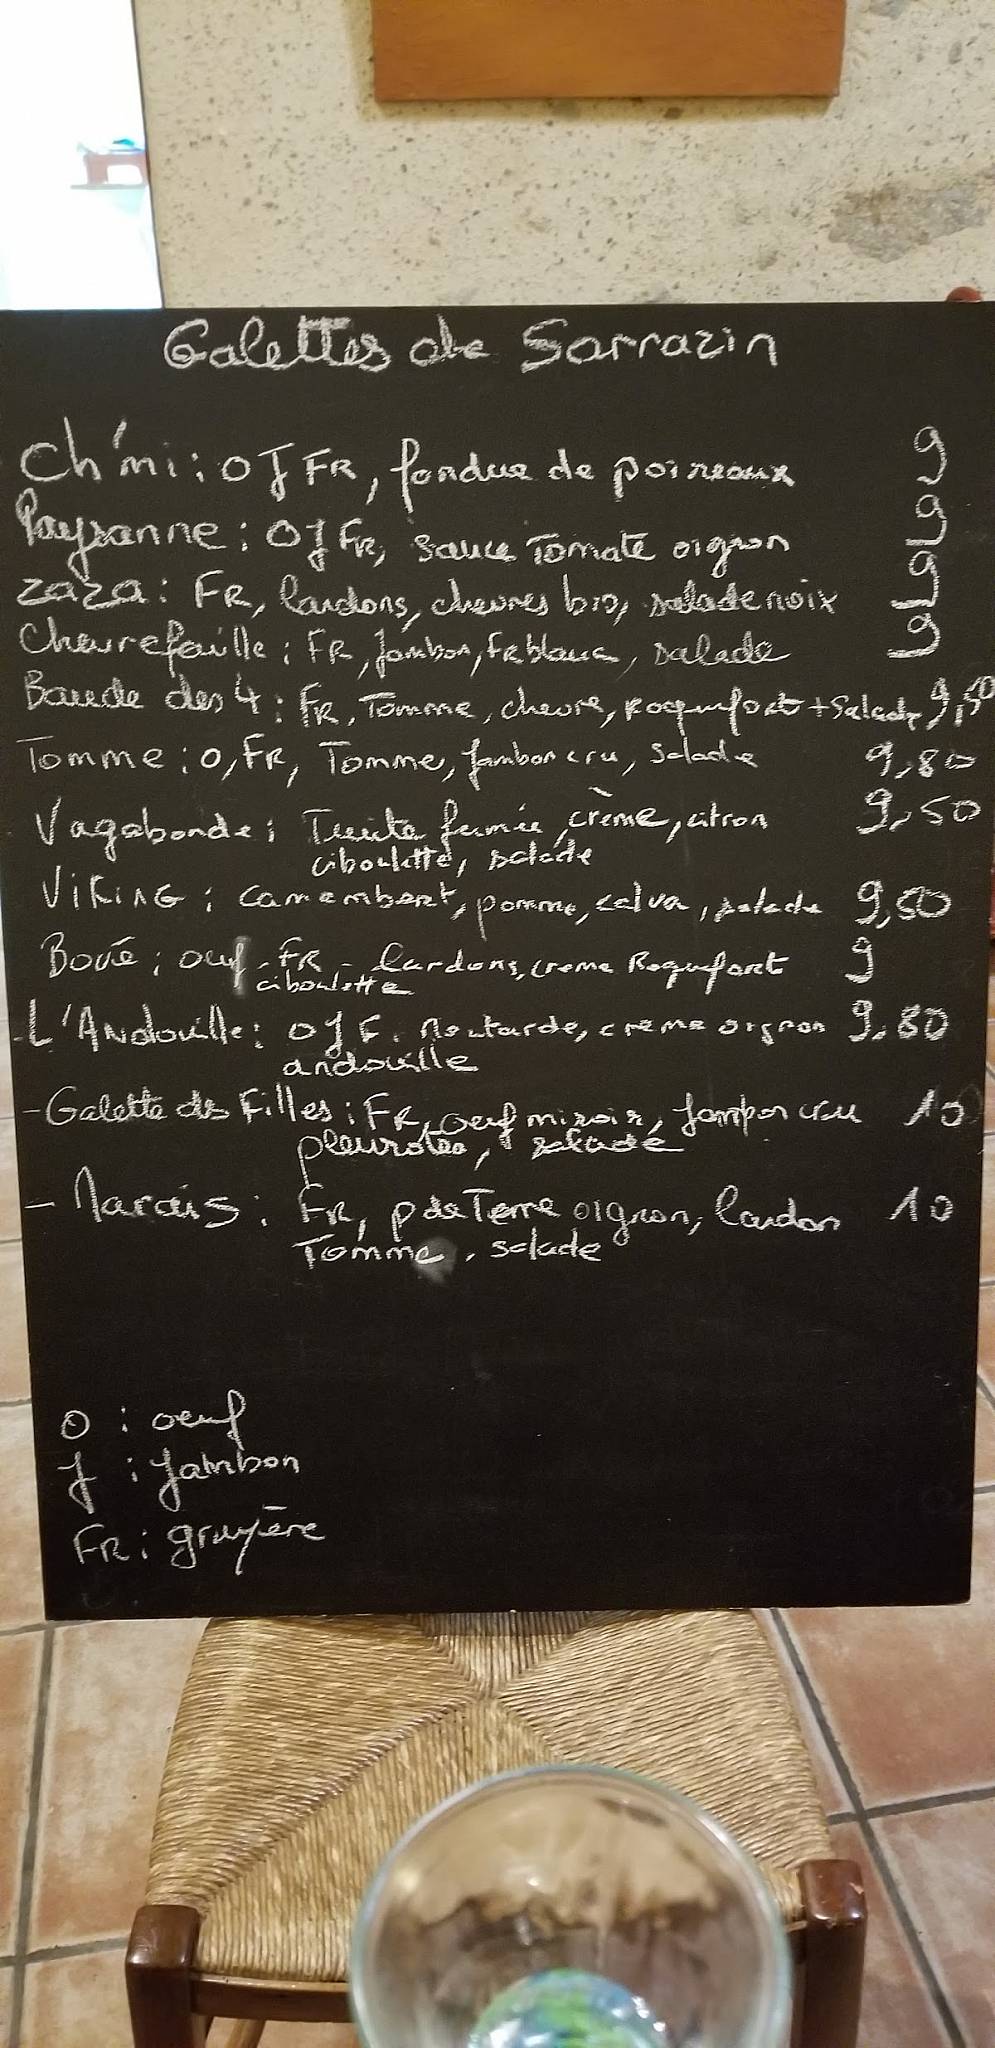 Galettes de Sarrazin
Ch'mi : O J FR, fondue de poireaux 9
Paysanne : O J FR, sauce Tomate oignon 9
zaza : FR, lardons, chevres bio, salade noix 9
Chevrefeuille : FR, jambon, FR blanc, salade 9
Bande des 4 : FR, Tomme, chevre, roquefort + salade 9,50
Tomme : O, FR, Tomme, jambon cru, salade 9,80
Vagabonde : Truite fumée, crème, citron 9,50
ciboulette, salade
Viking : camembert, pomme, calva, salade 9,50
Bové : oeuf - FR - lardons, creme Roquefort 9
ciboulette
- L'Andouille : O J F. moutarde, creme oignon 9,80
andouille
- Galette des Filles : FR, oeuf miroir, jambon cru 10
pleurotes, salade
- Marais : FR, p de Terre oignon, lardon 10
Tomme, salade
O : oeuf
J : jambon
FR : gruyère